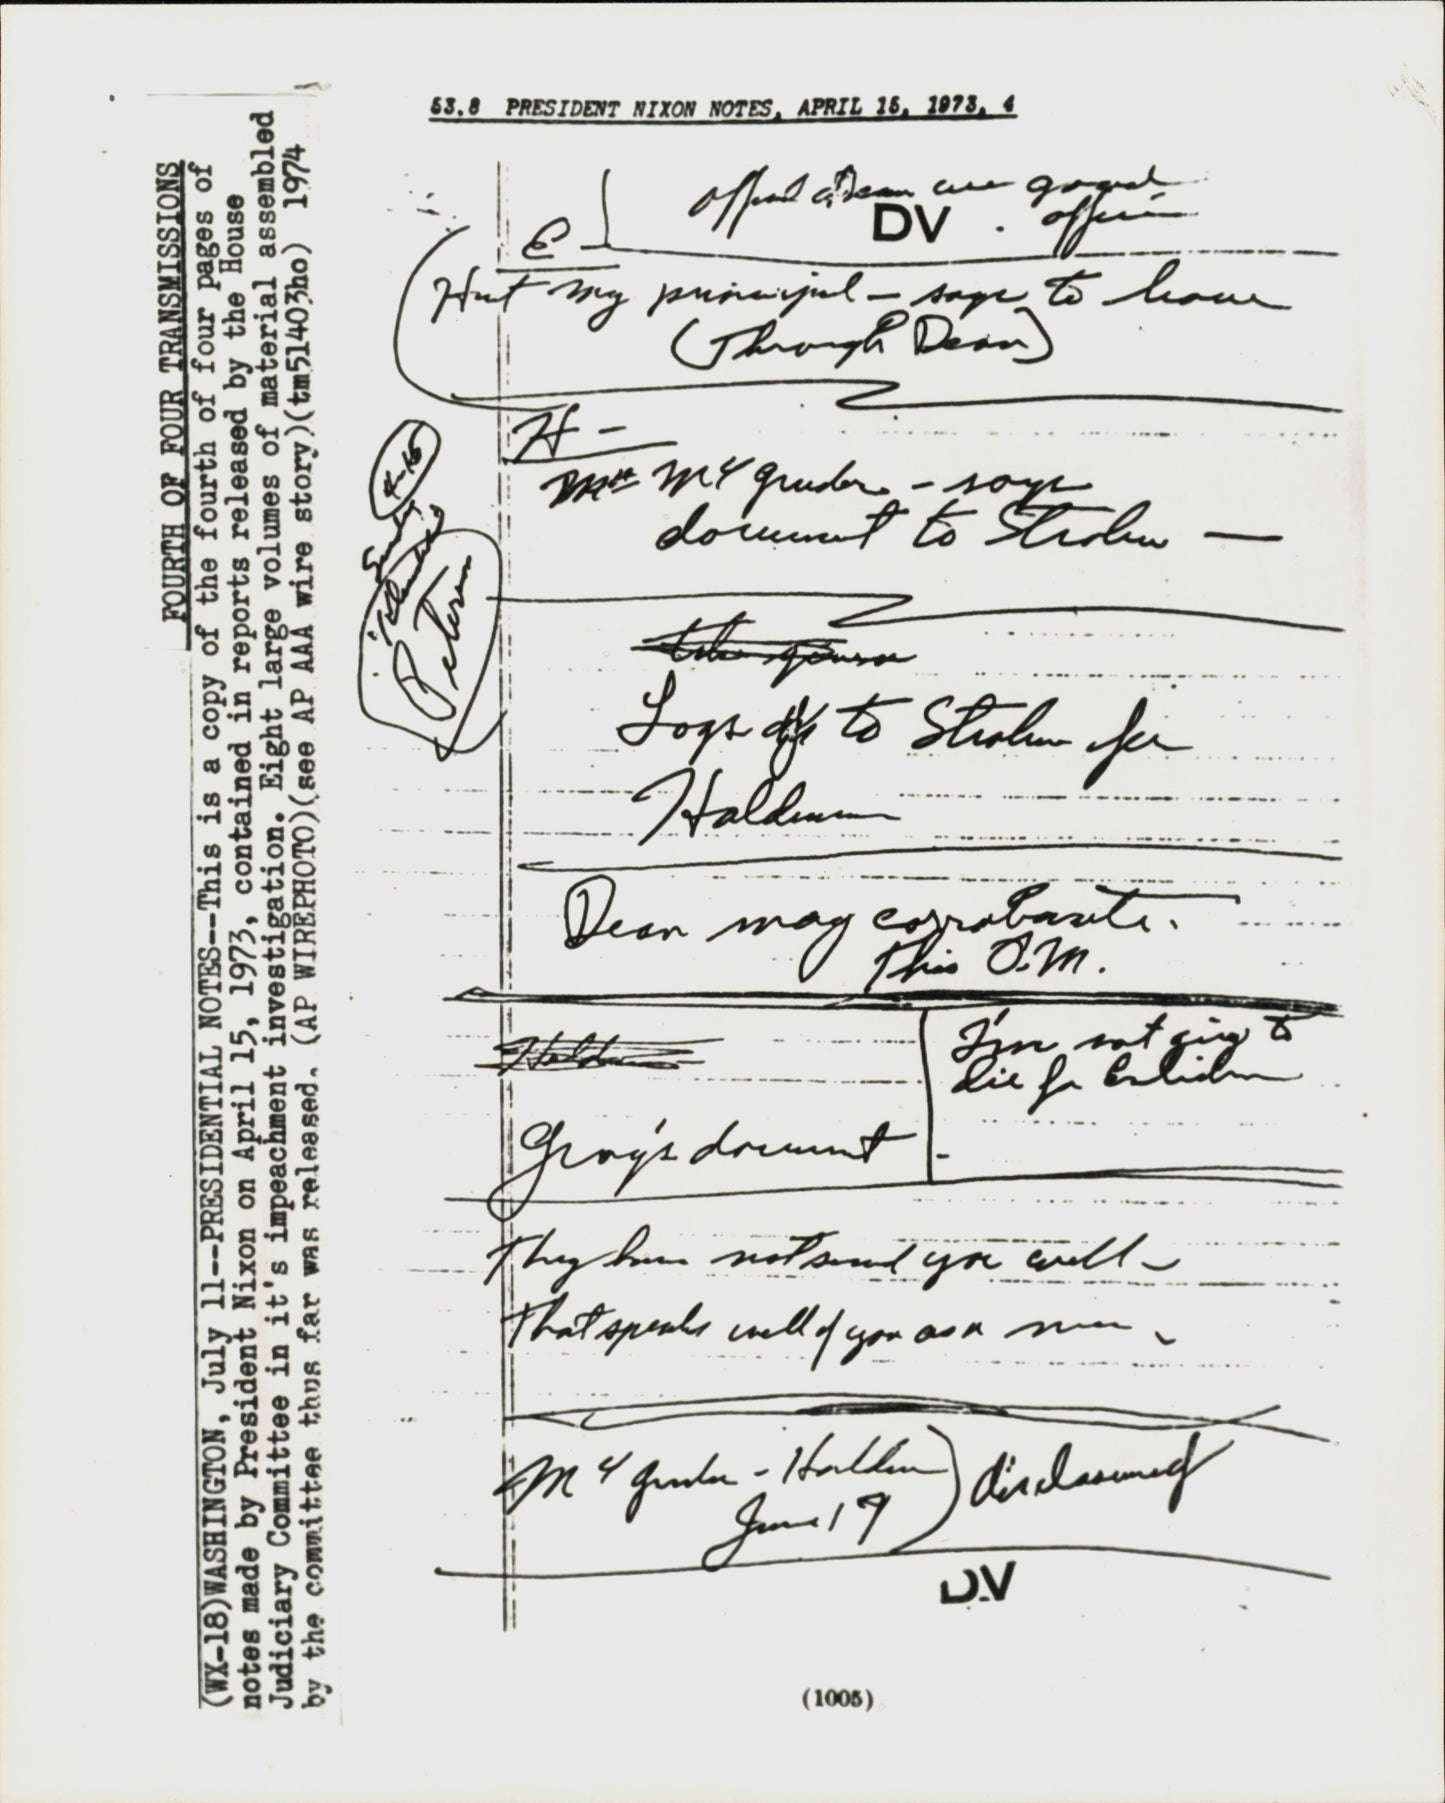 53.8 PRESIDENT NIXON NOTES, APRIL 15, 1973, 4
good
DV
E
Hunt my principal – says to leave
(Through Dean)
H –
McGruder – says
document to Strahn —
4-15
Peterson
Logs to Strahn for
Haldeman
Dean may corroborate.
This P.M.
I'm not going to
die for Erlichm
Gray's document
They have not served you well –
That speaks well of you as a man
McGruder – Haldem
June 19
disclosure of
DV
(1005)
FOURTH OF FOUR TRANSMISSIONS
(WX-18)WASHINGTON, July 11--PRESIDENTIAL NOTES--This is a copy of the fourth of four pages of
notes made by President Nixon on April 15, 1973, contained in reports released by the House
Judiciary Committee in it's impeachment investigation. Eight large volumes of material assembled
by the committee thus far was released. (AP WIREPHOTO)(see AP AAA wire story)(tm51403ho) 1974